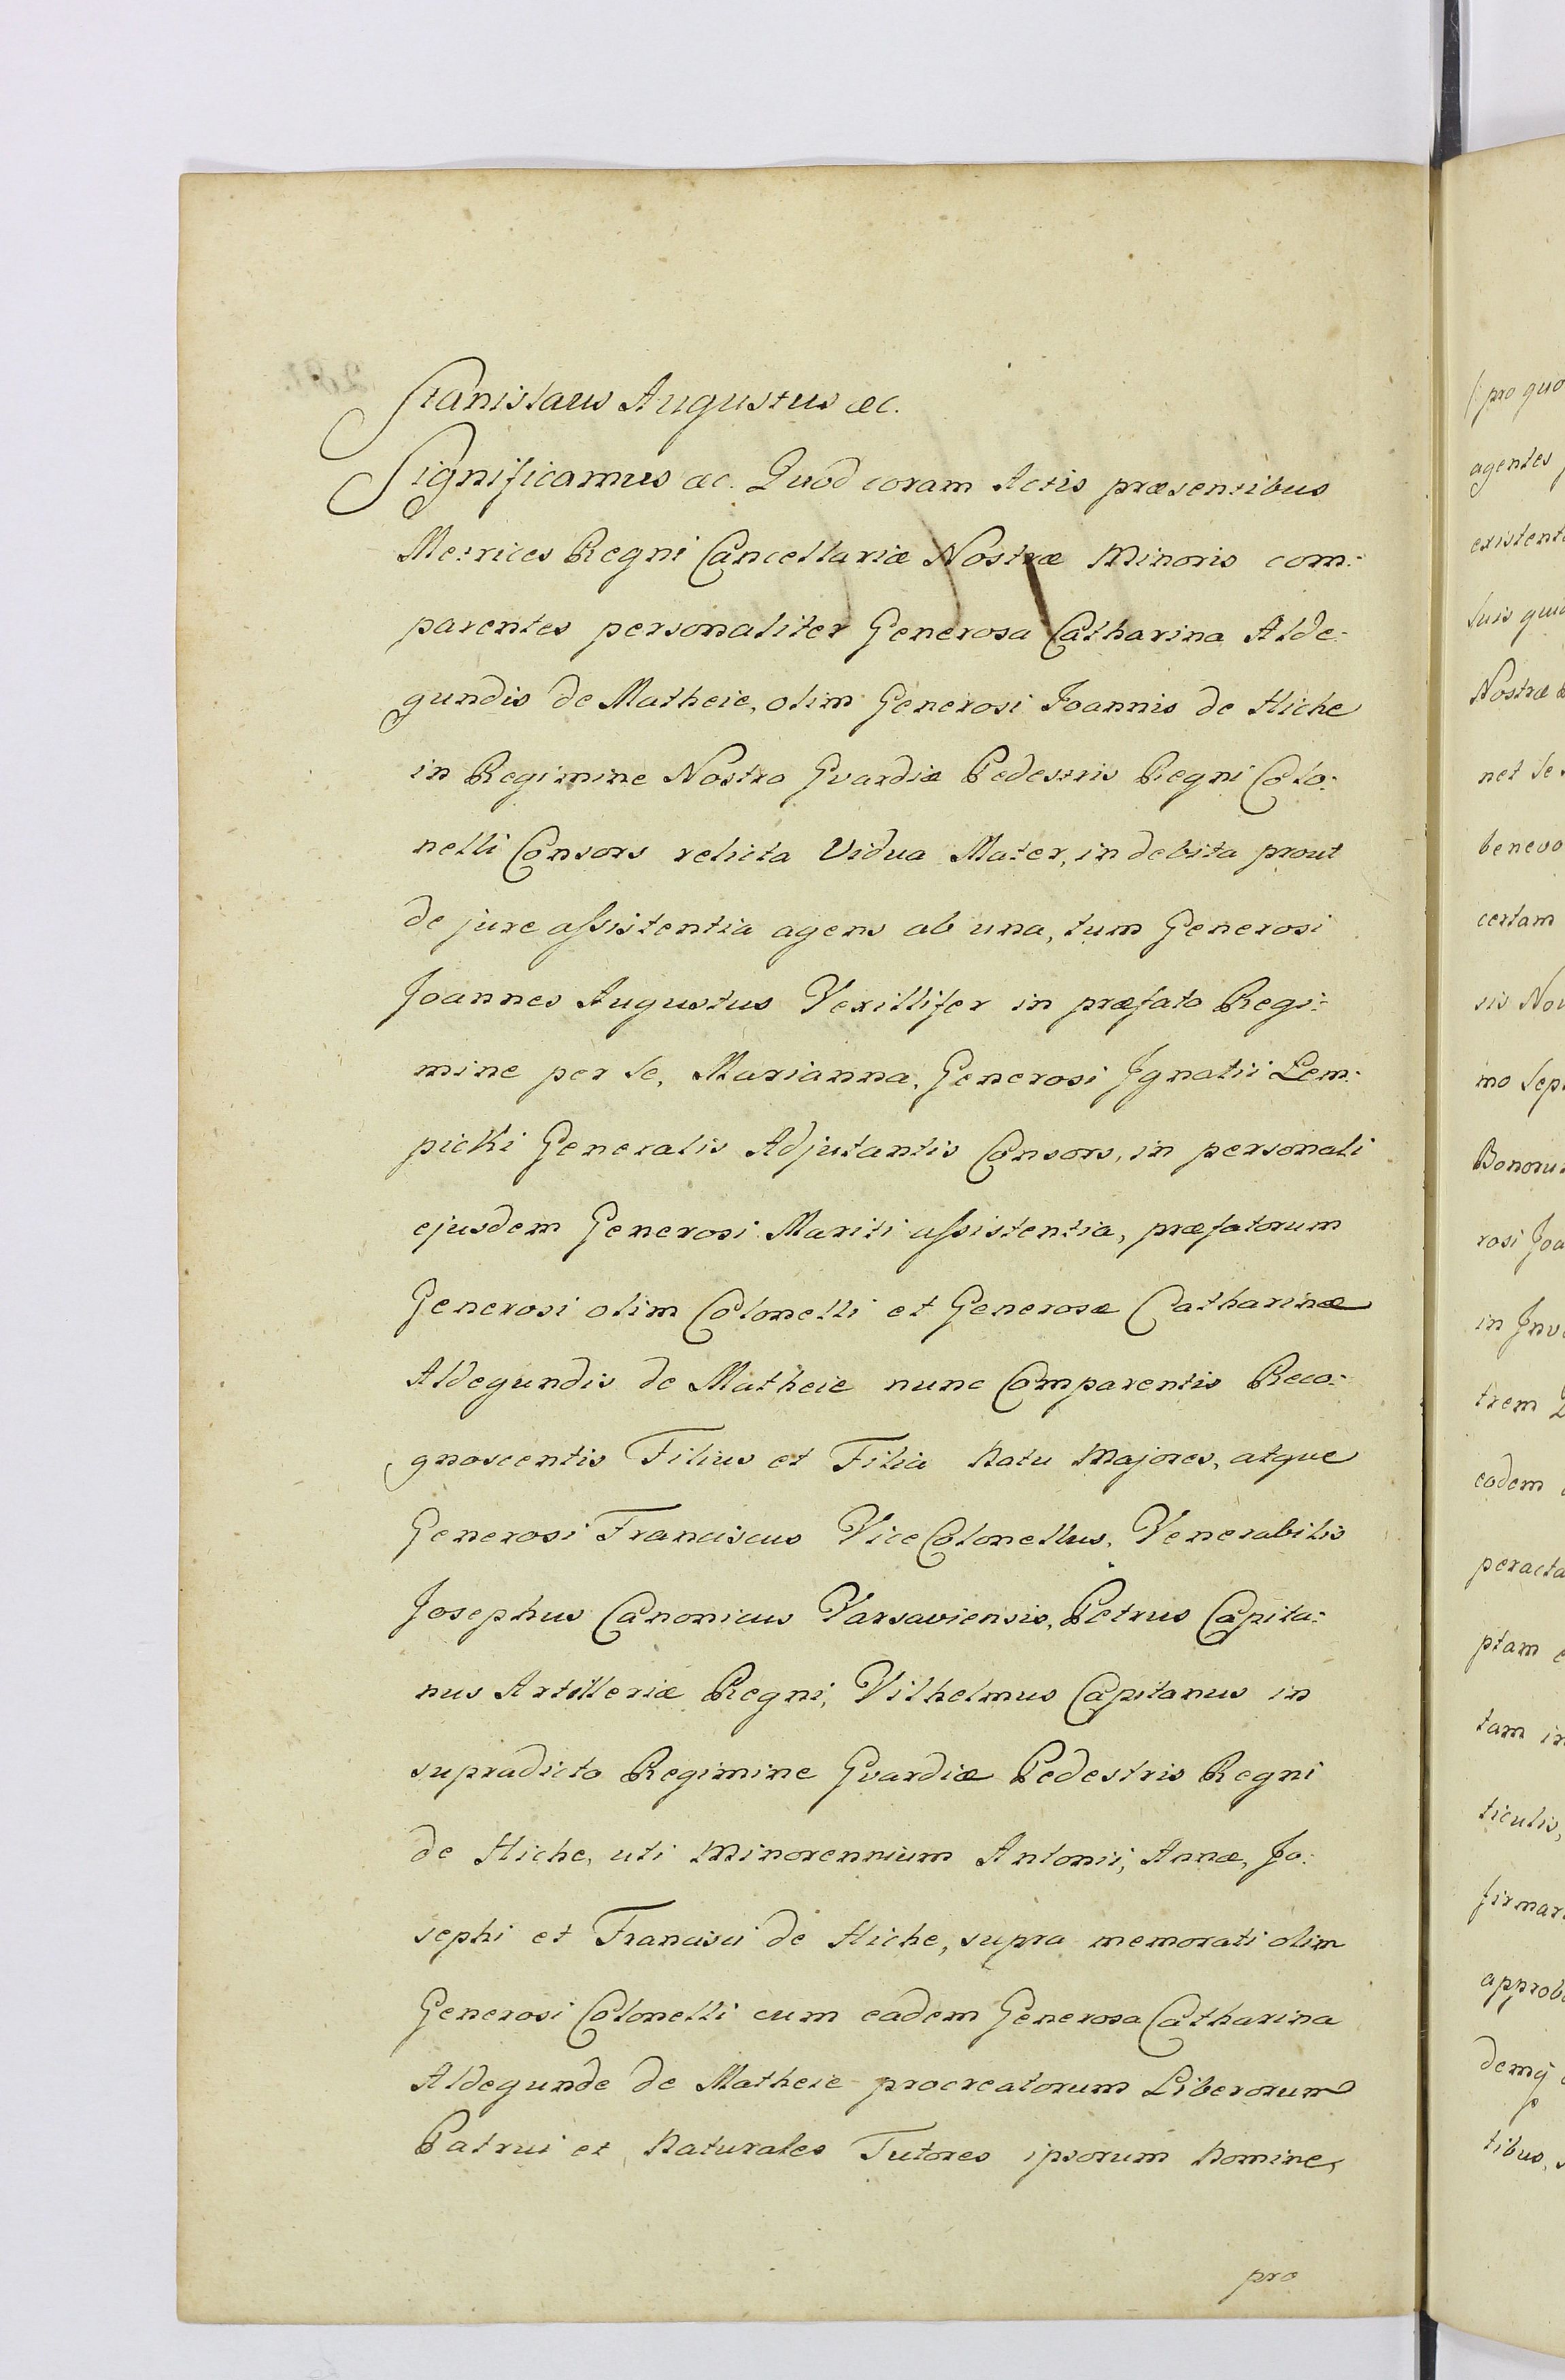 Stanislaus Augustus &c.
Significamus &c. Quod coram Actis præsentibus
Metrices Regni Cancellariæ Nostræ Minoris com-
parentes personaliter Generosa Catharina Alde-
gundis de Matheie, olim Generosi Joannis de Hiche
in Regimine Nostro Gvardiæ Pedestris Regni Colo-
nelli Consors relicta Vidua Mater, in debita prout
de jure assistentia agens ab una, tum Generosi
Joannes Augustus Vexillifer in præfato Regi-
mine per se, Marianna, Generosi Ignatii Lem-
picki Generalis Adjutantis Consors, in personali
ejusdem Generosi Mariti assistentia, præfatorum
Generosi olim Colonelli et Generosæ Catharinæ
Aldegundis de Matheie nunc Comparentis Reco-
gnoscentis Filius et Filia Natu Majores, atque
Generosi Franciscus ViceColonellus, Venerabilis
Josephus Canonicus Varsaviensis, Petrus Capita-
nus Artilleriæ Regni, Vilhelmus Capitanus in
supradicto Regimine Gvardiæ Pedestris Regni
de Hiche, uti Minorennium Antonii, Annæ, Jo-
sephi et Francisci de Hiche, supra memorati olim
Generosi Colonelli cum eadem Generosa Catharina
Aldegunde de Matheie procreatorum Liberorum
Patrui et Naturales Tutores ipsorum Nomine,
pro
(: pro quo
agentes
existent
suis qui
Nostræ
net se
benevo
certam
sis Nov
mo sep
Bonoru
rosi Joa
in Inv
trem
eodem
peracta
ptam
tam in
ticulis,
firmar
approb
demq
tibus,